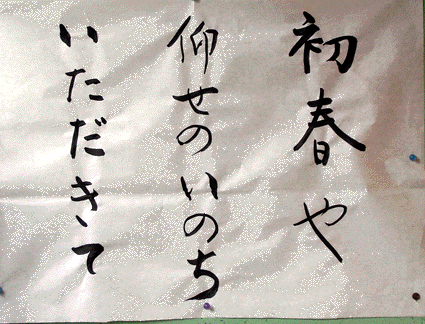 初春や
仰せのいのち
いただきて